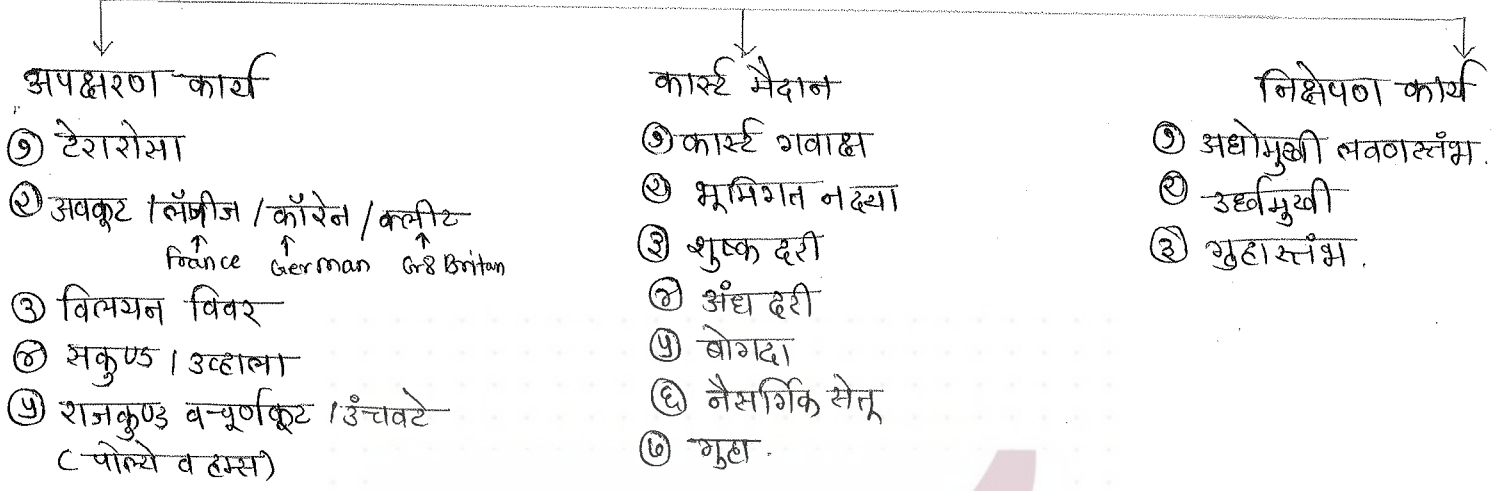 अपक्षरण कार्य
① टेरारोसा
② अवकूट / लॅपीज / कॉरेन / क्लीट
France German Gr8 Britan
③ विलयन विवर
④ सकुण्ड / उव्हाला
⑤ राजकुण्ड व चूर्णकूट / उंचवटे
(पोल्ये व हम्स)
कार्स्ट मैदान
① कार्स्ट गवाक्ष
② भूमिगत नद्या
③ शुष्क दरी
④ अंध दरी
⑤ बोगदा
⑥ नैसर्गिक सेतू
⑦ गुहा.
निक्षेपण कार्य
① अधोमुखी लवणस्तंभ.
② उर्ध्वमुखी
③ गुहास्तंभ.